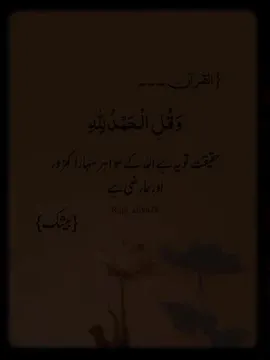 القرآن ----
وَقُلِ الْحَمْدُ لِلَّهِ
حقیقت تو یہ ہے اللہ کے سوا ہر سہارا کمزور
اور عارضی ہے
{بیشک}